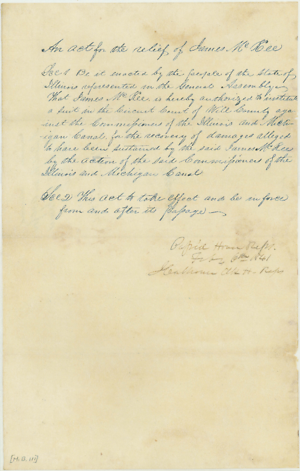 An act for the relief of James McKee
Sec 1 Be it enacted by the people of the State of
Illinois represented in the General Assembly
That James McKee is hereby authorized to institute
a Suit in the Circuit Court of Will County aga
inst the Commissioners of the Illinois and Mich
igan Canal, for the recovery of damages alleged
to have been sustained by the said James McKee
by the action of the said Commissioners of the
Illinois and Michigan Canal
Sec 2 This Act to take effect and be in force
from and after its passage
House Reps.
1841
Calhoun Clk H. Reps